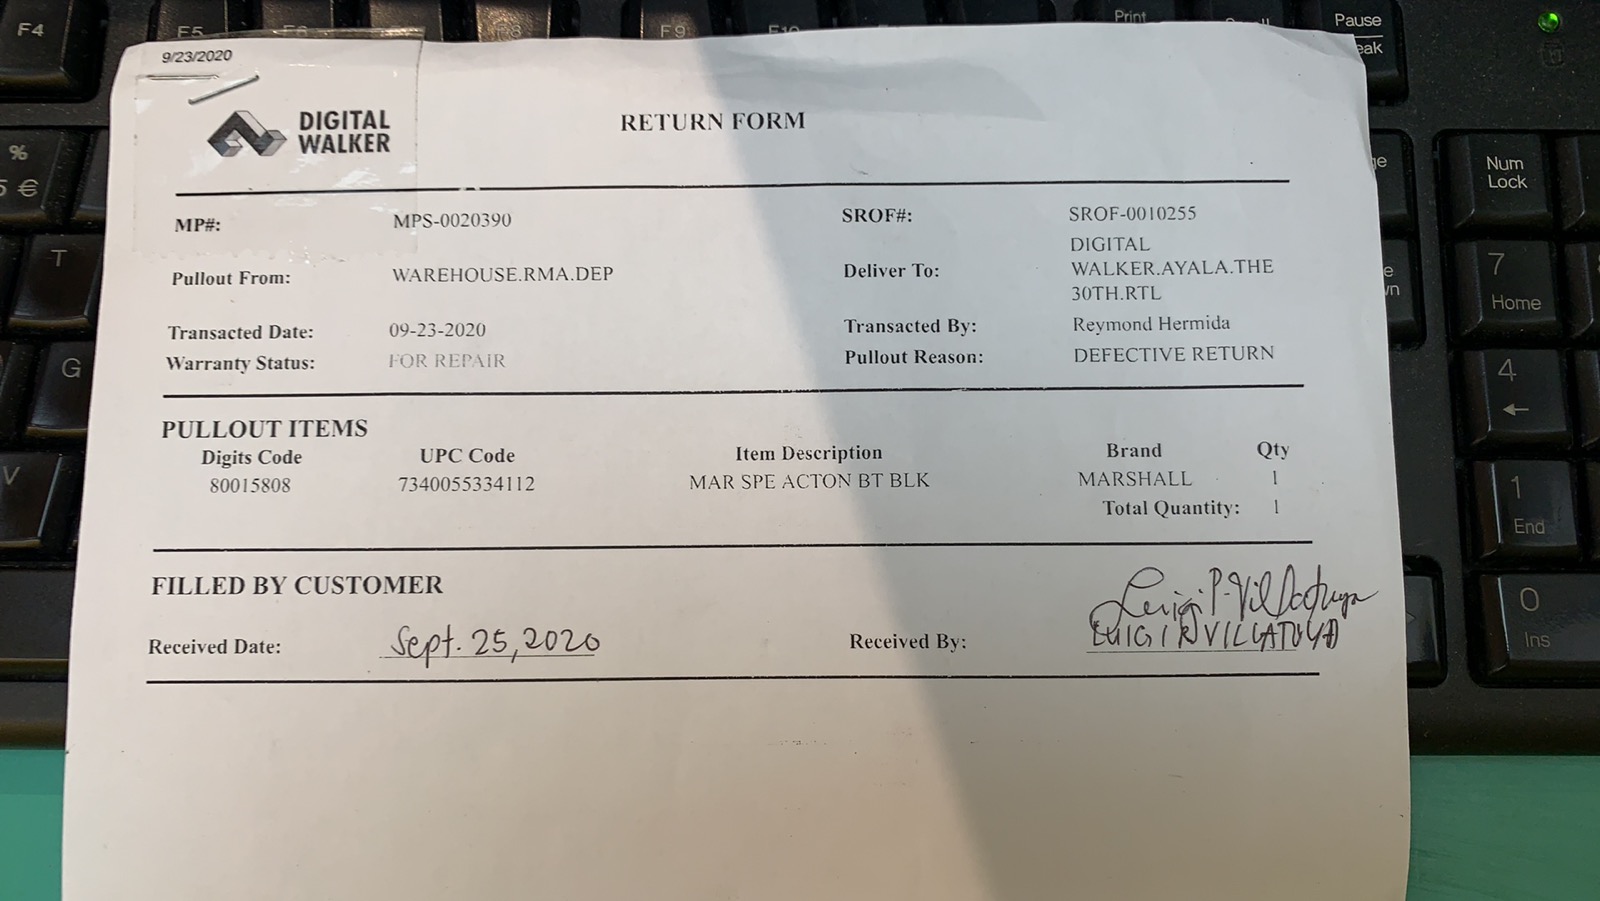 9/23/2020
DIGITAL
WALKER
RETURN FORM
MP#: MPS-0020390 SROF#: SROF-0010255
Pullout From: WAREHOUSE.RMA.DEP Deliver To: DIGITAL
WALKER.AYALA.THE
30TH.RTL
Transacted Date: 09-23-2020 Transacted By: Reymond Hermida
Warranty Status: FOR REPAIR Pullout Reason: DEFECTIVE RETURN
PULLOUT ITEMS
Digits Code UPC Code Item Description Brand Qty
80015808 7340055334112 MAR SPE ACTON BT BLK MARSHALL 1
Total Quantity: 1
FILLED BY CUSTOMER
Received Date: Sept. 25, 2020 Received By: LUIGI
F4
F5
F9
Print
Pause
eak
%
5 €
T
G
V
Num
Lock
7
Home
4
←
1
End
0
Ins